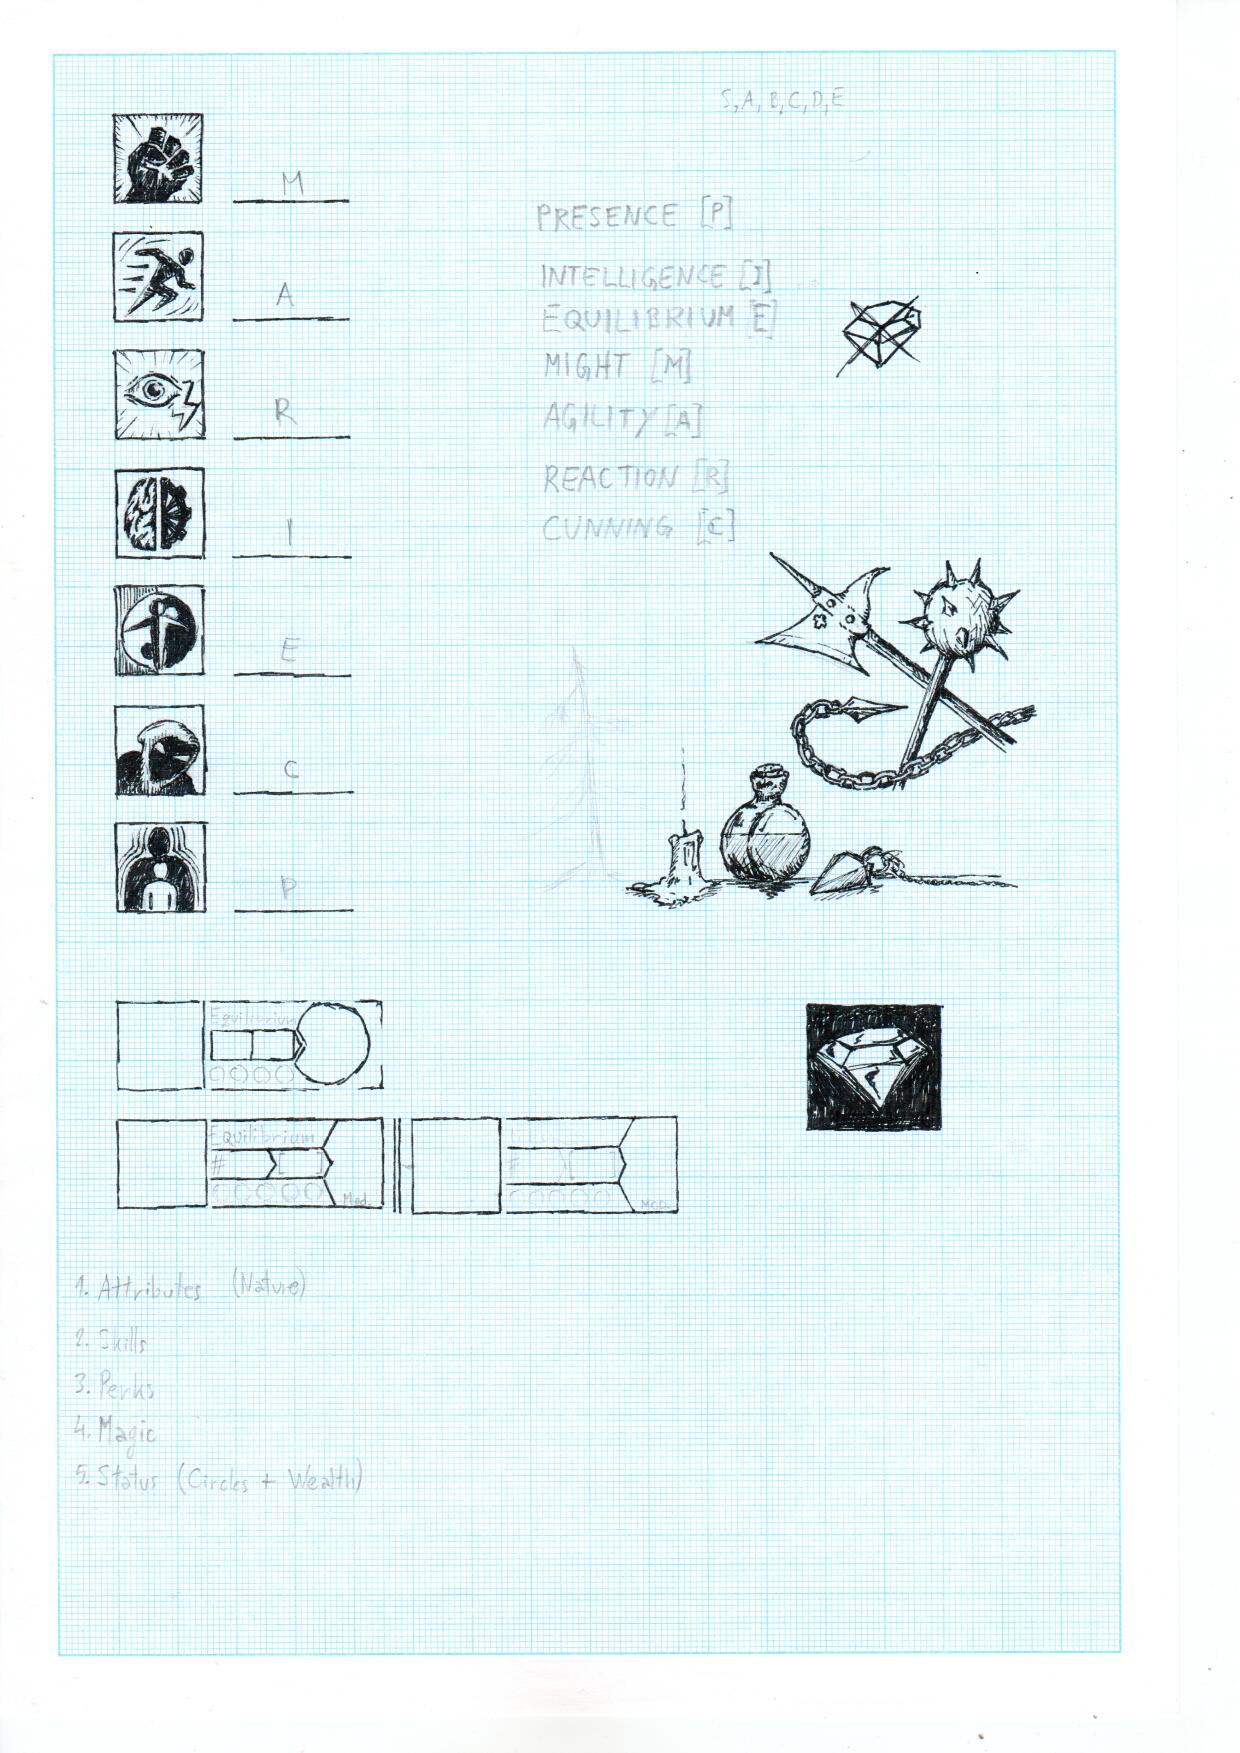 S, A, B, C, D, E
M
A
R
I
E
C
P
PRESENCE [P]
INTELLIGENCE [I]
EQUILIBRIUM [E]
MIGHT [M]
AGILITY [A]
REACTION [R]
CUNNING [C]
Equilibrium
Equilibrium
#
[ ]
Mod.
#
[ ]
MOD.
1. Attributes (Nature)
2. Skills
3. Perks
4. Magic
5. Status (Circles + Wealth)